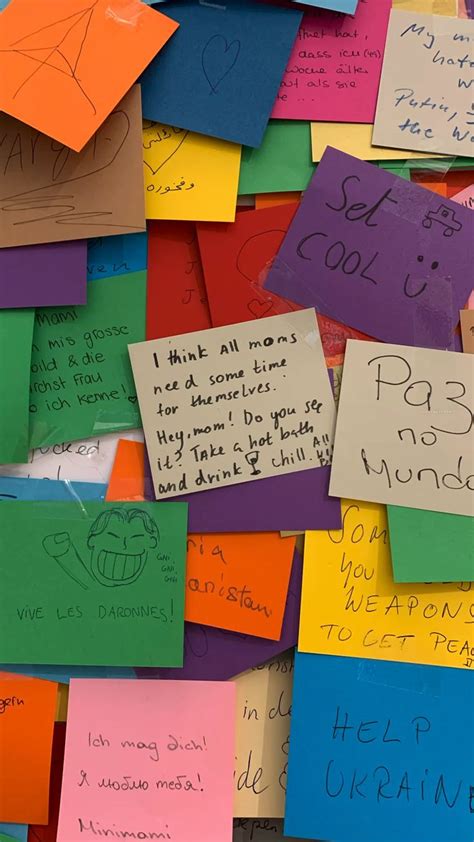 My m
hate
w
Putin,
the W
dass ich
Woche älter
als sie
وفخورة
Set
COOL
Mami
mis grosse
bild & die
rchst Frau
o ich kenne!
I think All moms
need some time
for themselves.
Hey, mom! Do you see
it? Take a hot bath
and drink chill.
Paz
no
Mundo
ucked
VIVE LES DARONNES!
ria
anistan
SOM
YOU
WEAPONS
TO GET PEA
HELP
UKRAINE
in d
ide &
gern
Ich mag dich!
Я люблю тебя!
Minimami